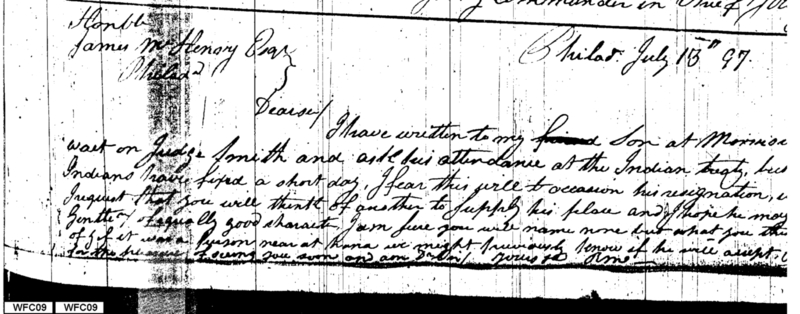 Commander in Chief
Honble
James McHenry Esqr
Philada
Philad. July 13th 97.
Dear sir/
I have written to my friend Son at Morriss
wait on Judge Smith and ask his attendance at the Indian treaty, but
Indians have fixed a short day, I fear this will occasion his resignation,
I request that you will think of another to supply his place and I hope he may
Gentn of equally good character I am sure you will name none but what you
of & if it was a person near at hand we might previously know if he will accept.
for the pleasure of seeing you soon and am Dr Sir/ Yours &c RM
WFC09 WFC09